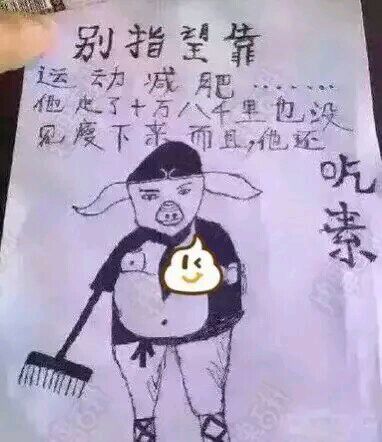 别指望靠
运动减肥……
他走了十万八千里也没
见瘦下来 而且,他还
吃素